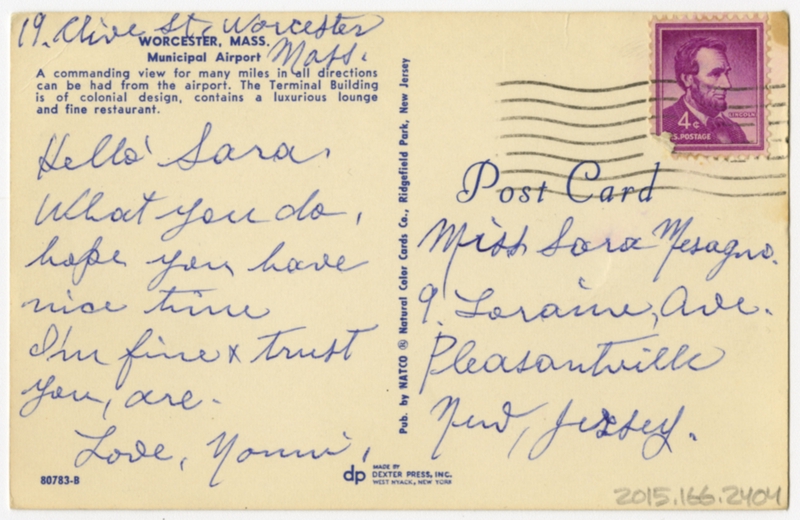 19. Clive St. Worcester
Mass.
WORCESTER, MASS.
Municipal Airport
A commanding view for many miles in all directions
can be had from the airport. The Terminal Building
is of colonial design, contains a luxurious lounge
and fine restaurant.
Hello Sara,
What you do,
hope you have
nice time
I'm fine & trust
you, are.
Love, Nonni,
80783-B
Pub. by NATCO ® Natural Color Cards Co., Ridgefield Park, New Jersey
dp MADE BY
DEXTER PRESS, INC.
WEST NYACK, NEW YORK
LINCOLN
4¢
U.S. POSTAGE
Post Card
Miss Sara Mesagno.
9, Loraine, Ave.
Pleasantville
New, Jersey.
2015.166.2404